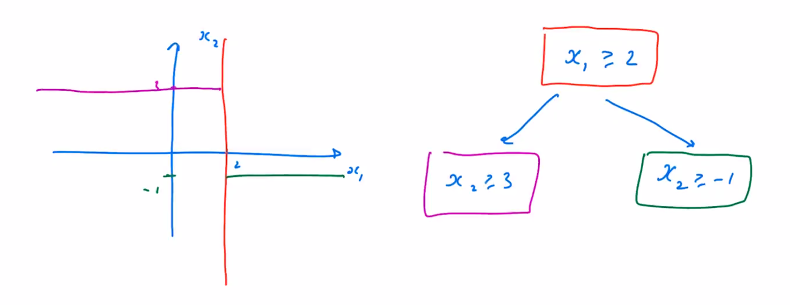 x₂
2
-1
x₁
x₁ ≥ 2
x₂ ≥ 3
x₂ ≥ -1